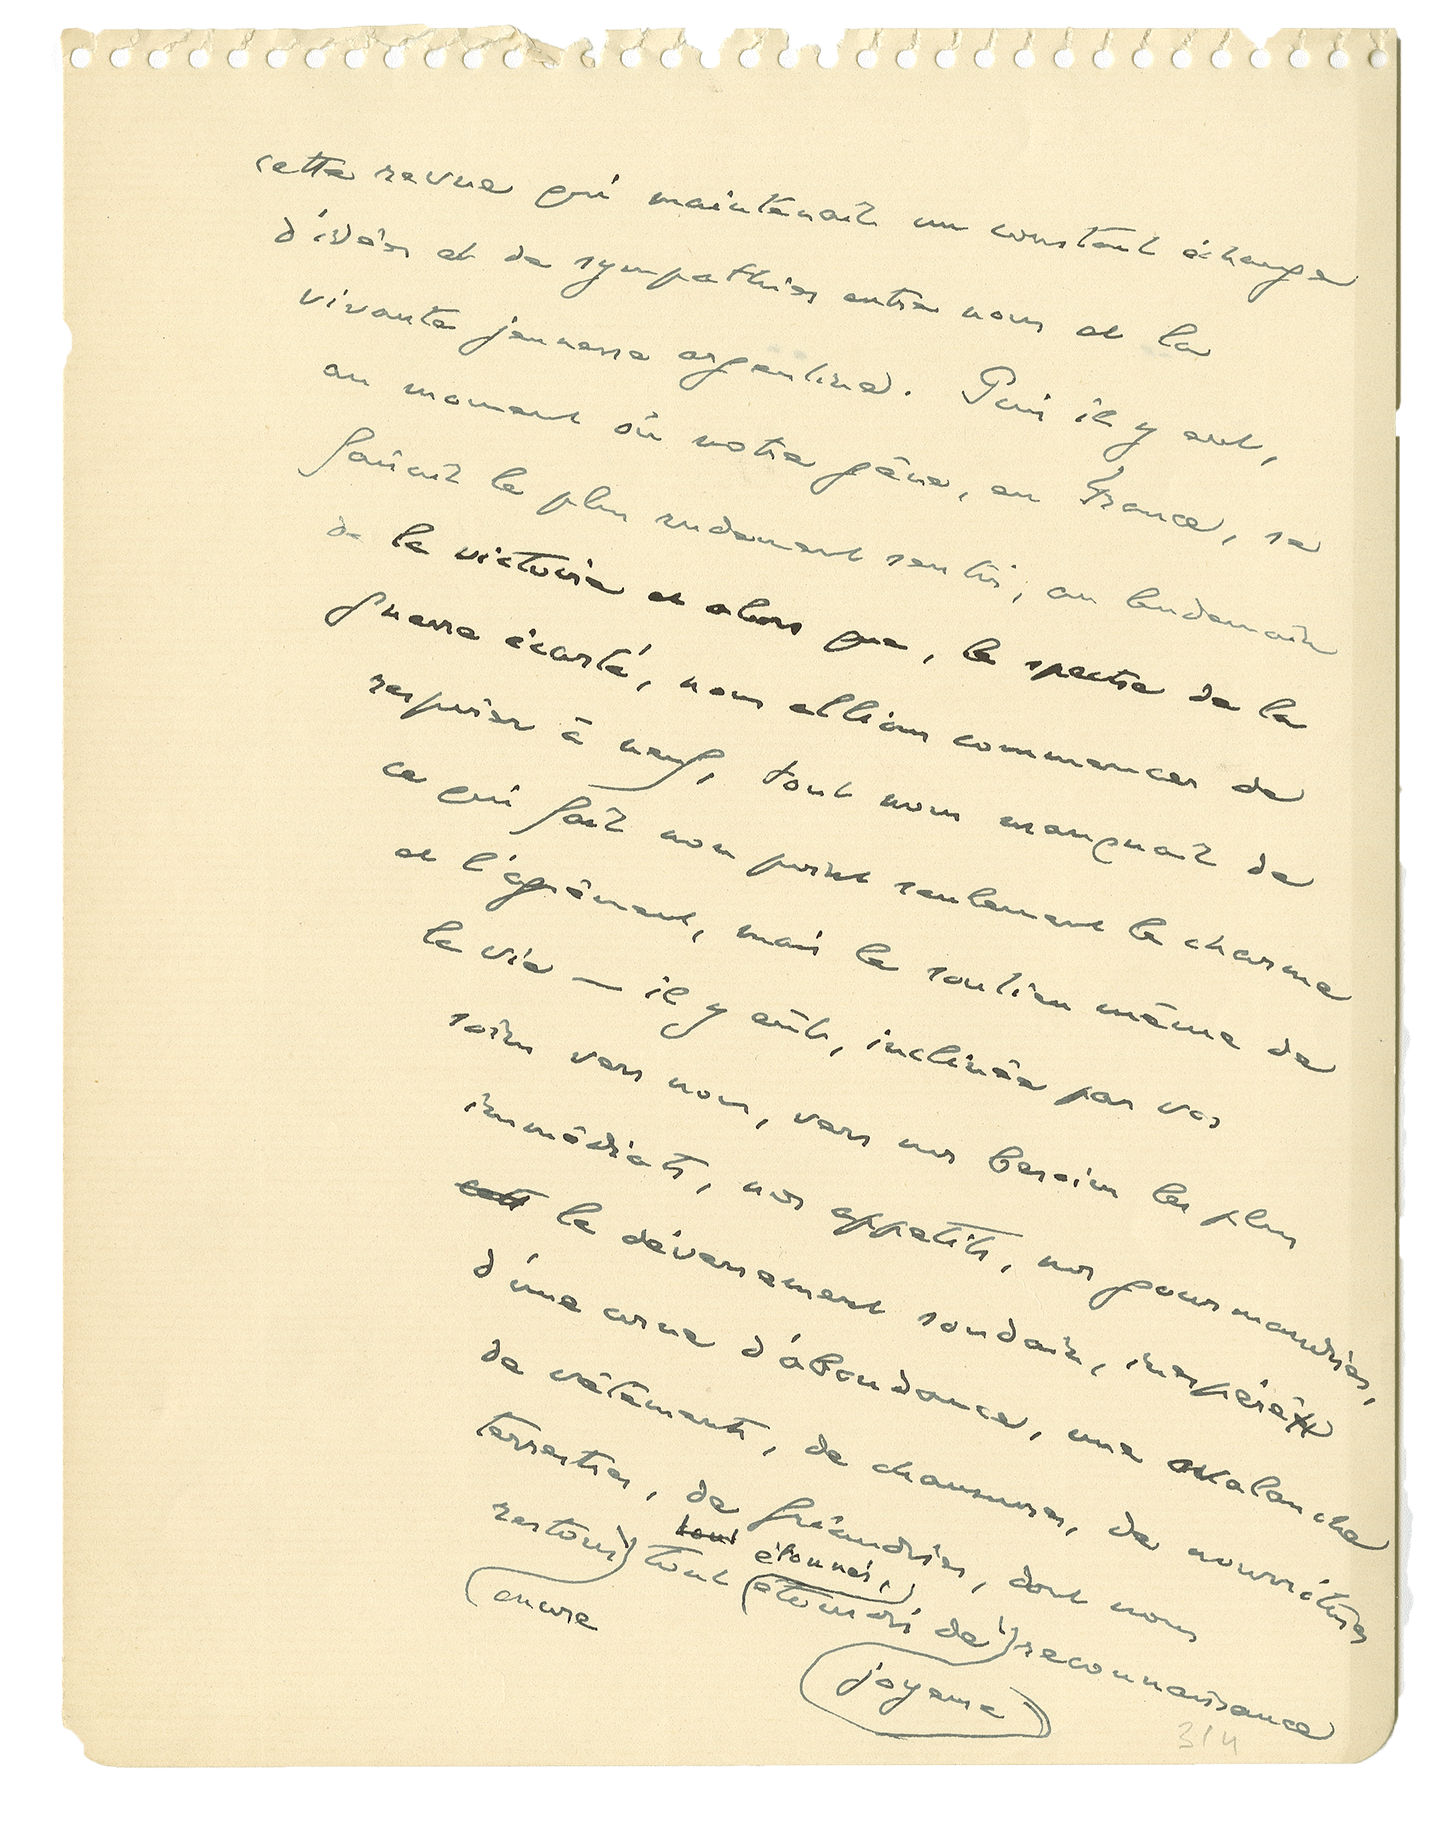 cette revue qui maintenait un constant échange
d'idées et de sympathies entre nous et la
vivante jeunesse argentine. Puis il y eut,
au moment où notre gêne, en France, se
faisait le plus rudement sentir, au lendemain
de la victoire et alors que, le spectre de la
guerre écarté, nous allions commencer de
respirer à neuf, tout nous manquait de
ce qui fait non point seulement le charme
et l'agrément, mais le soutien même de
la vie — il y eût, inclinée par vos
soins vers nous, vers nos besoins les plus
immédiats, nos appétits, nos gourmandises,
le déversement soudain, inespéré
d'une corne d'abondance, une avalanche
de vêtements, de chaussures, de nourritures
terrestres, de friandises, dont nous
tout étonnés,
restons tout étourdis de reconnaissance
encore
joyeuse
314